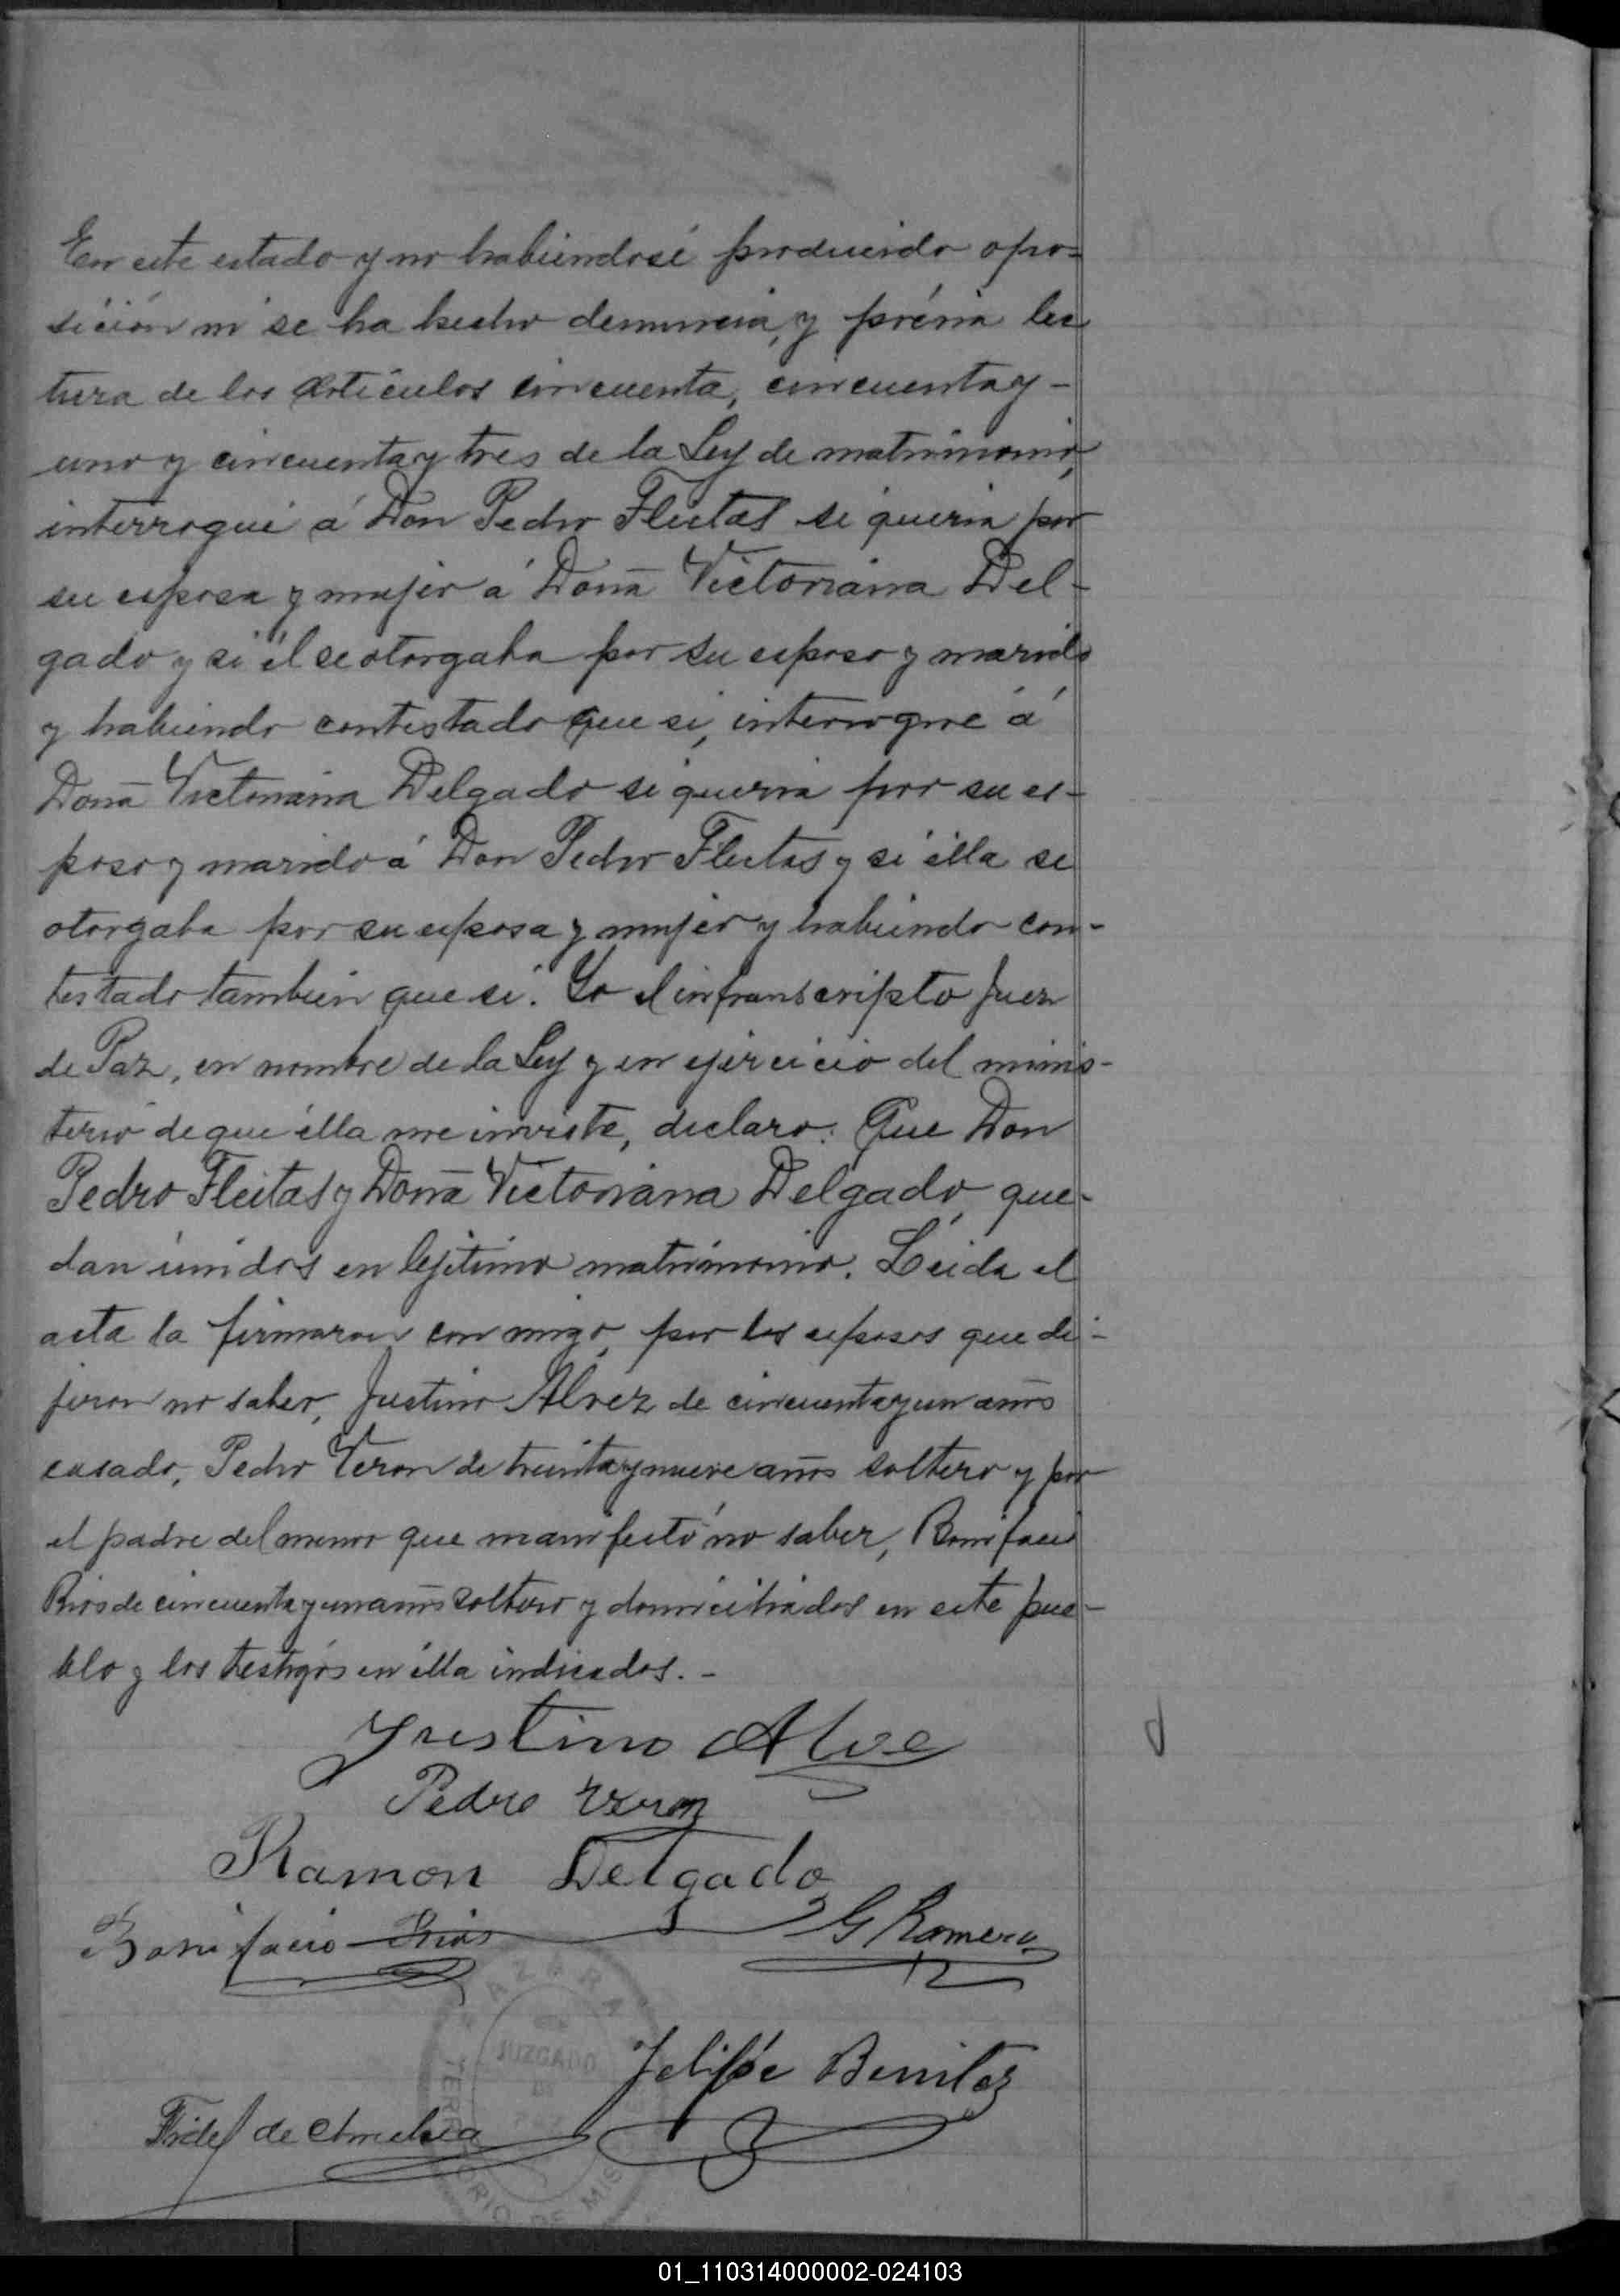 En este estado y no habiendose producido opo-
sición ni se ha hecho denuncia, y prévia lec
tura de los artículos cincuenta, cincuenta y -
uno y cincuenta y tres de la Ley de matrimonio,
interrogué á Don Pedro Fleitas si queria por
su esposa y mujer á Doña Victoriana Del-
gado y si él se otorgaba por su esposo y marido
y habiendo contestado que si, interrogué á
Doña Victoriana Delgado si queria por su es-
poso y marido á Don Pedro Fleitas y si élla se
otorgaba por su esposa y mujer y habiendo con-
testado tambien que si. Yo el infranscripto Juez
de Paz, en nombre de la Ley y en ejercicio del minis-
terio de que élla me inviste, declaro: Que Don
Pedro Fleitas y Doña Victoriana Delgado, que-
dan únidos en lejítimo matrimonio. Leida el
acta la firmaron con migo, por los esposos que di-
jeron no saber, Justino Alvez de cincuenta y un años
casado, Pedro Veron de treinta y nueve años soltero y por
el padre del menor que manifestó no saber, Bonifacio
Rios de cincuenta y un años soltero y domiciliados en este pue-
blo y los testigos en élla indicados. -
Justino Alve
Pedro Veron
Ramon Delgado
Bonifacio Rios G Romero
AZARA
JUZGADO
DE
PAZ
TERRITORIO DE MIS
Felipe Benitez
Fidel de
01_110314000002-024103